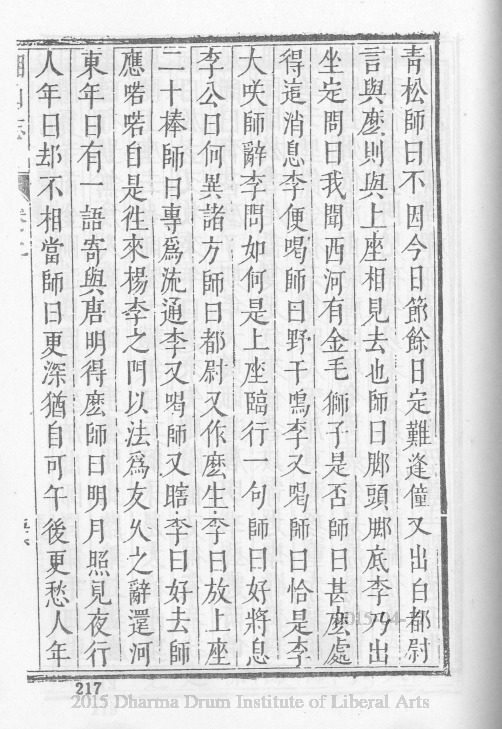 青松師曰不因今日節餘日定難逢僮又出白都尉
言與麼則與上座相見去也師曰脚頭脚底李乃出
坐定問曰我聞西河有金毛獅子是否師曰甚麼處
得這消息李便喝師曰野干鳴李又喝師曰恰是李
大咲師辭李問如何是上座臨行一句師曰好將息
李公曰何異諸方師曰都尉又作麼生李曰放上座
二十棒師曰專為流通李又喝師又瞎李曰好去師
應喏喏自是徃來楊李之門以法為友乆之辭還河
東年曰有一語寄與唐明得麽師曰明月照見夜行
人年曰却不相當師曰更深猶自可午後更愁人年
217
2015 Dharma Drum Institute of Liberal Arts